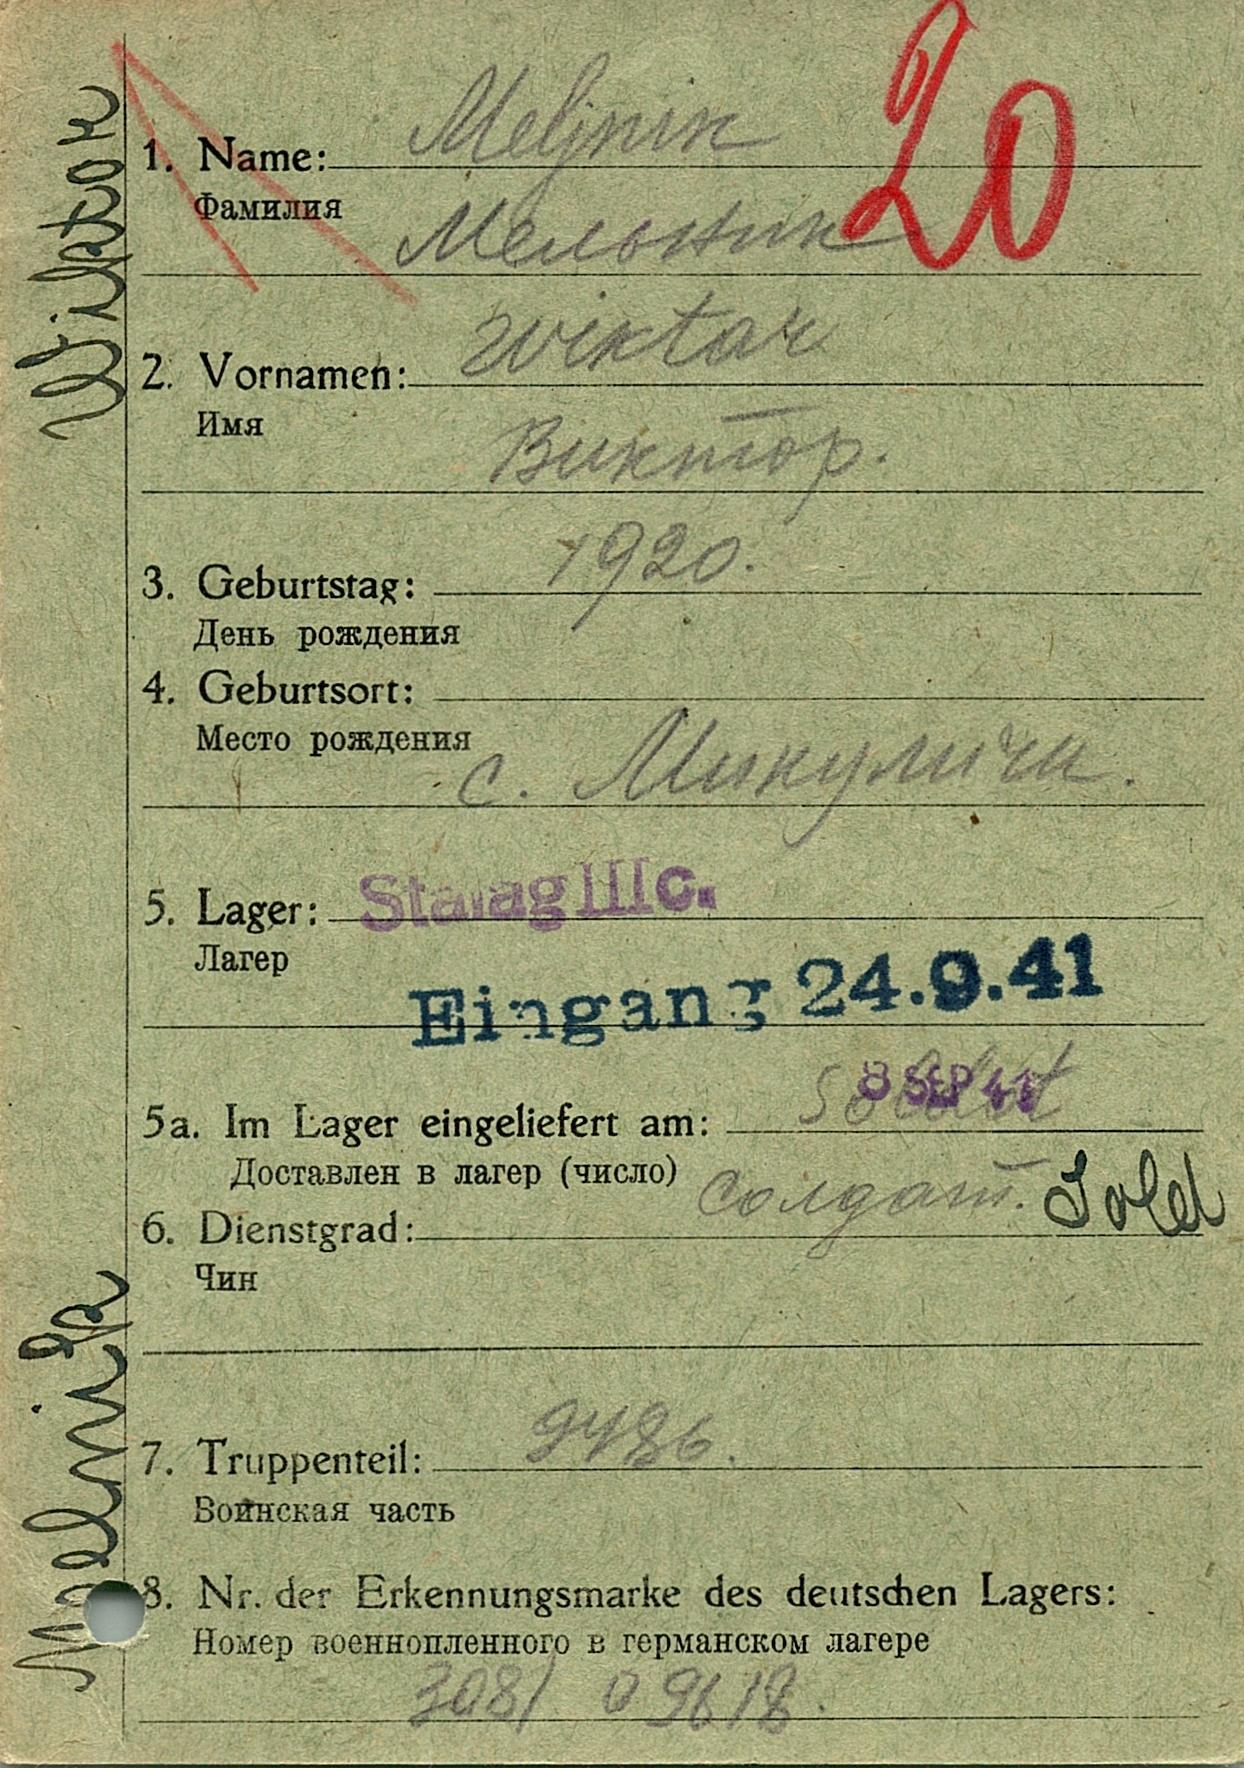 20
1. Name: Meljnik
Фамилия
Мельник
2. Vornamen: Wiktar
Имя
Виктор.
3. Geburtstag: 1920.
День рождения
4. Geburtsort:
Место рождения
с. Микуличи.
5. Lager: Stalag IIIc.
Лагер
Eingang 24.9.41
5a. Im Lager eingeliefert am: Soldat 8 SEP 41
Доставлен в лагер (число)
солдат. Sold
6. Dienstgrad:
Чин
7. Truppenteil: 9486.
Воинская часть
8. Nr. der Erkennungsmarke des deutschen Lagers:
Номер военнопленного в германском лагере
308/
Melnik, Viktor